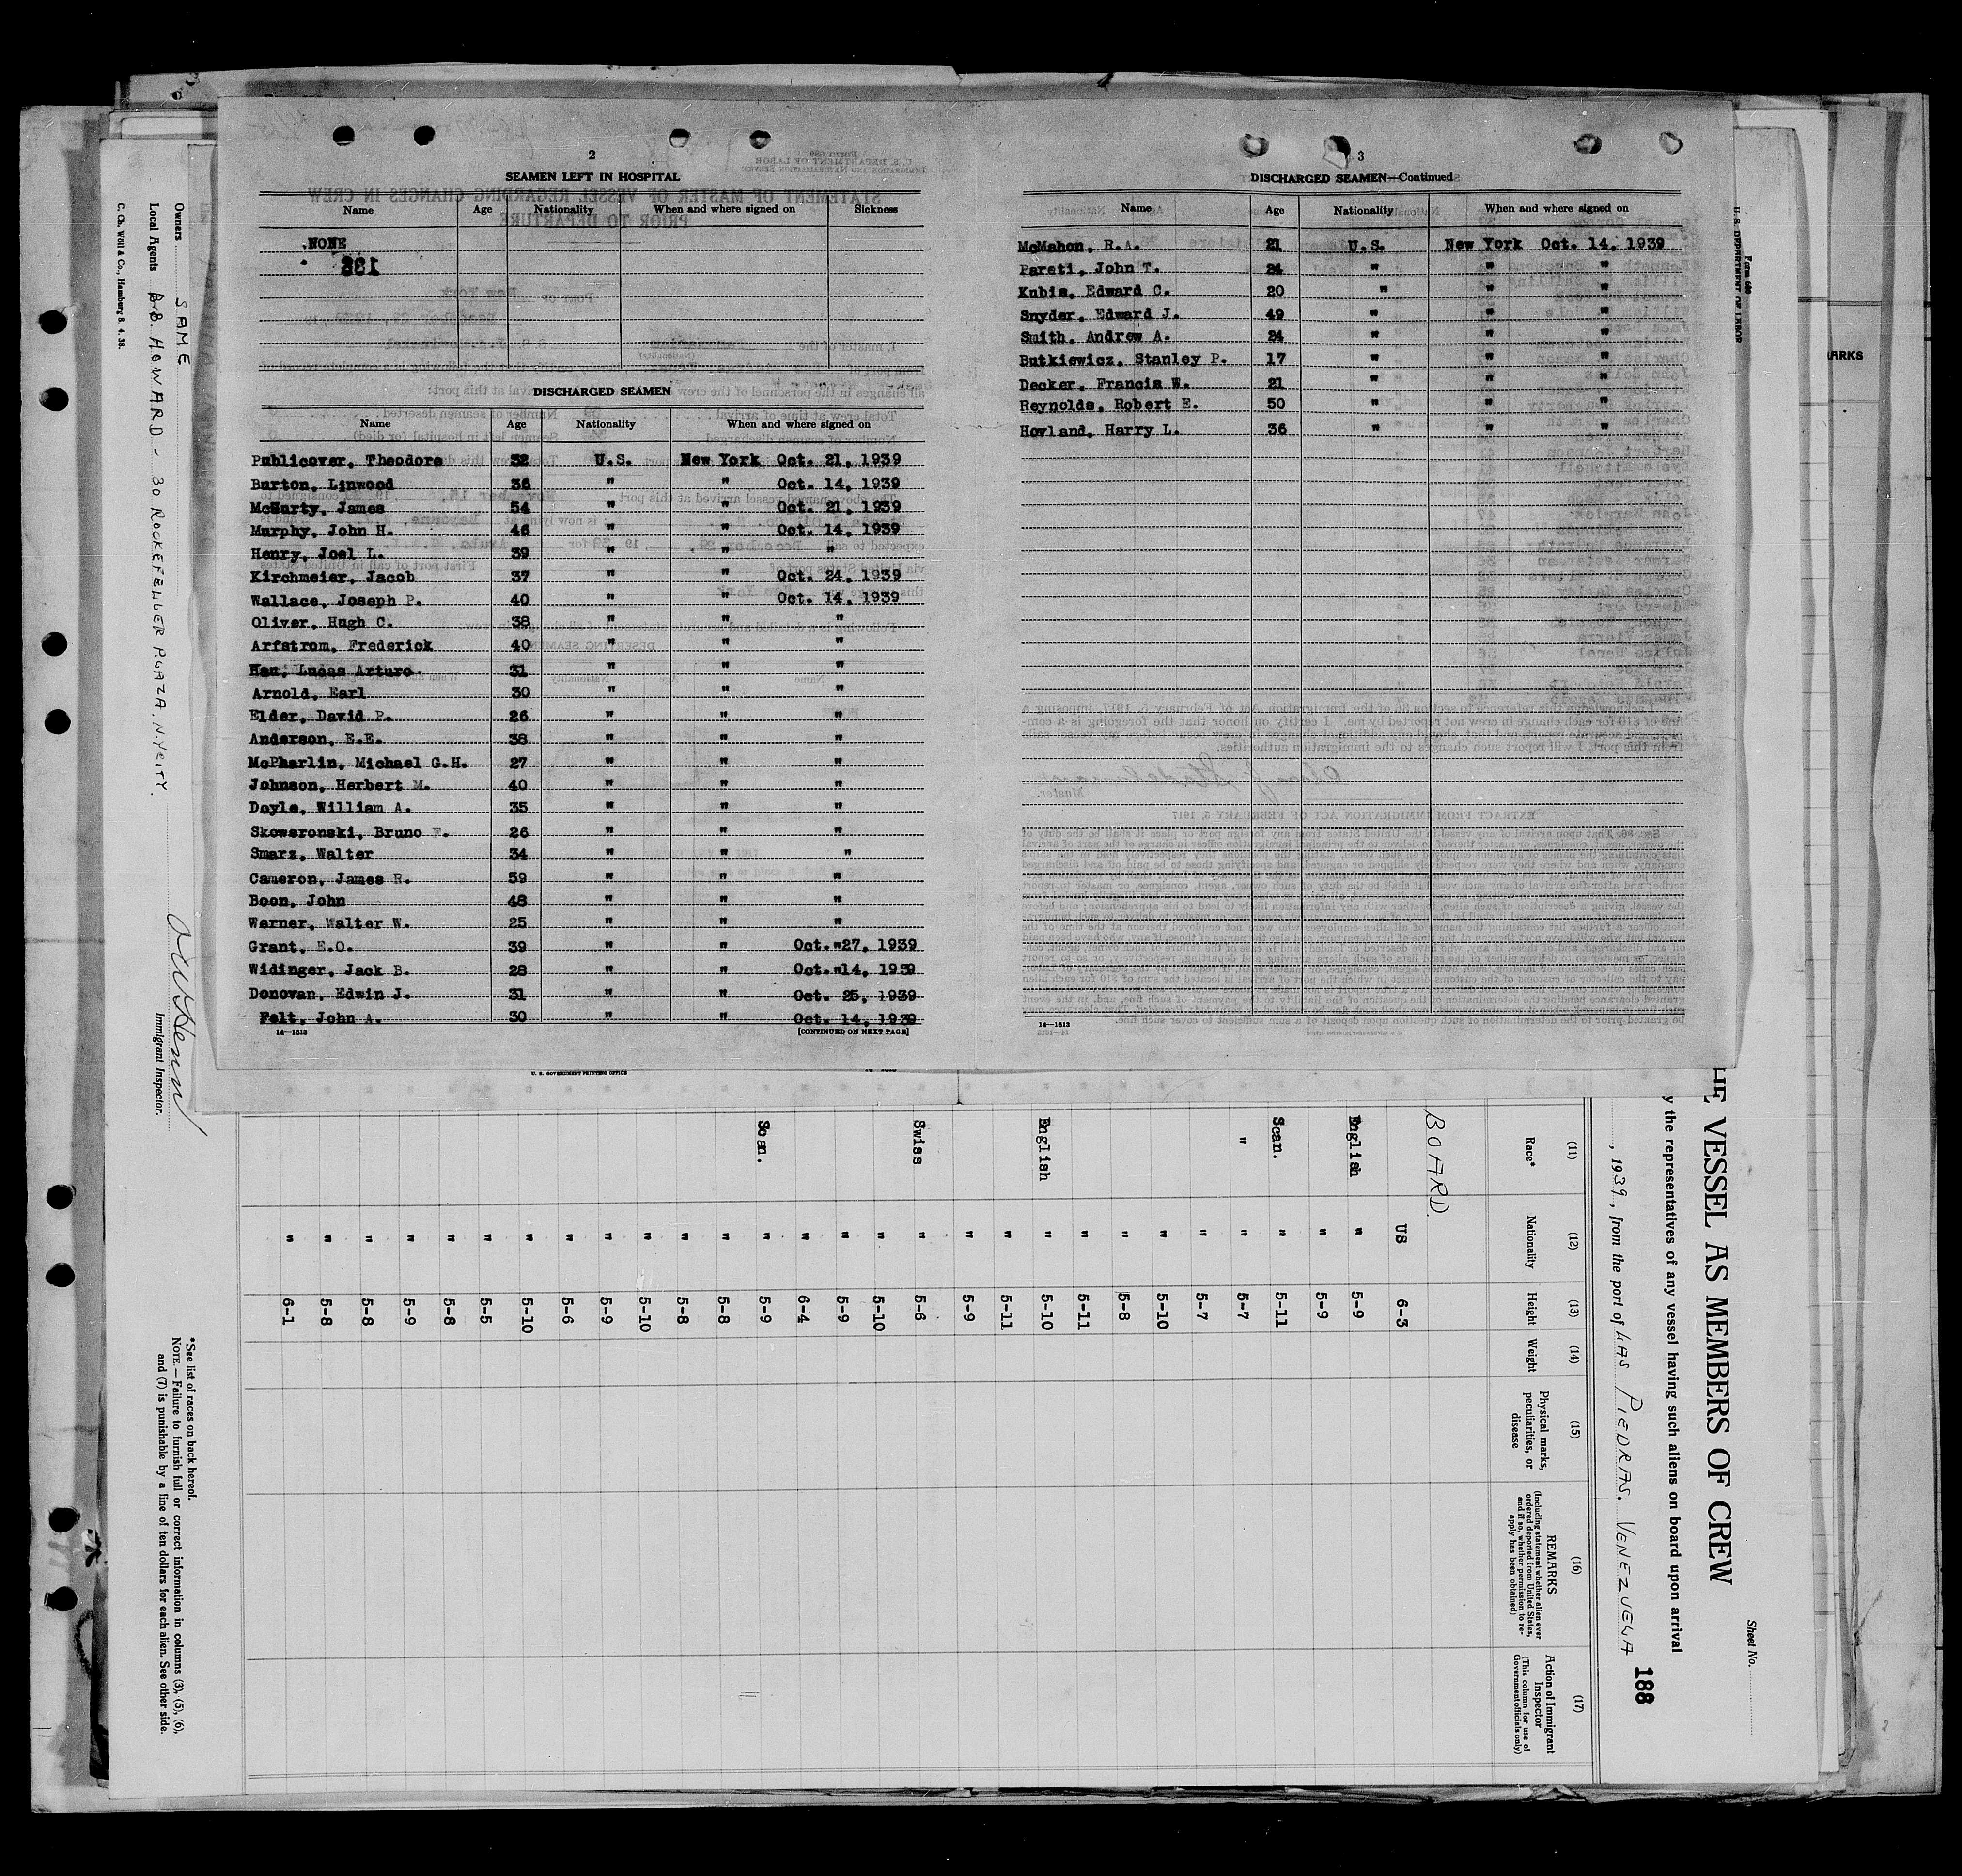 2
SEAMEN LEFT IN HOSPITAL
Name Age Nationality When and where signed on Sickness
NONE
DISCHARGED SEAMEN
Name Age Nationality When and where signed on
Publicover, Theodore 32 U.S. New York Oct. 21, 1939
Burton, Linwood 36 " " Oct. 14, 1939
McHurty, James 54 " " Oct. 21, 1939
Murphy, John H. 46 " " Oct. 14, 1939
Henry, Joel L. 39 " " "
Kirchmeier, Jacob 37 " " Oct. 24, 1939
Wallace, Joseph P. 40 " " Oct. 14, 1939
Oliver, Hugh C. 38 " " "
Arfstrom, Frederick 40 " " "
Han, Lucas Arturo 31 " " "
Arnold, Earl 30 " " "
Elder, David P. 26 " " "
Anderson, E.E. 38 " " "
McPharlin, Michael G.H. 27 " " "
Johnson, Herbert M. 40 " " "
Doyle, William A. 35 " " "
Skowsronski, Bruno F. 26 " " "
Smarz, Walter 34 " " "
Cameron, James R. 59 " " "
Boon, John 48 " " "
Werner, Walter W. 25 " " "
Grant, E.O. 39 " " Oct. 27, 1939
Widinger, Jack B. 28 " " Oct. 14, 1939
Donovan, Edwin J. 31 " " Oct. 25, 1939
Felt, John A. 30 " " Oct. 14, 1939
14—1613 [CONTINUED ON NEXT PAGE]
U. S. GOVERNMENT PRINTING OFFICE
3
DISCHARGED SEAMEN—Continued
Name Age Nationality When and where signed on
McMahon, R.A. 21 U.S. New York Oct. 14, 1939
Pareti, John T. 24 " " "
Kubis, Edward C. 20 " " "
Snyder, Edward J. 49 " " "
Smith, Andrew A. 24 " " "
Butkiewicz, Stanley P. 17 " " "
Decker, Francis W. 21 " " "
Reynolds, Robert E. 50 " " "
Hovland, Harry L. 36 " " "
14—1613
Form 680
U. S. DEPARTMENT OF LABOR
ARKS
Sheet No.
188
E VESSEL AS MEMBERS OF CREW
y the representatives of any vessel having such aliens on board upon arrival
, 1939, from the port of LAS PIEDRAS. VENEZUELA
(11) (12) (13) (14) (15) (16) (17)
Race* Nationality Height Weight Physical marks, peculiarities, or disease REMARKS (Including statement whether alien ever ordered deported from United States, and if so, whether permission to re-apply has been obtained) Action of Immigrant Inspector (This column for use of Government officials only)
BOARD.
US 6-3
English " 5-9
" 5-9
Scan. " 5-11
" " 5-7
" 5-7
" 5-10
" 5-8
" 5-11
English " 5-10
" 5-11
" 5-9
Swiss " 5-6
" 5-10
" 5-9
" 6-4
Scan. " 5-9
" 5-8
" 5-8
" 5-10
" 5-9
" 5-6
" 5-10
" 5-5
" 5-8
" 5-9
" 5-8
" 5-8
" 6-1
*See list of races on back hereof.
NOTE.—Failure to furnish full or correct information in columns (3), (5), (6),
and (7) is punishable by a fine of ten dollars for each alien. See other side.
Owners SAME
Local Agents A.B. HOWARD - 30 ROCKEFELLER PLAZA. N.Y CITY.
Immigrant Inspector.
C. Ch. Wöll & Co., Hamburg 8. 4. 38.